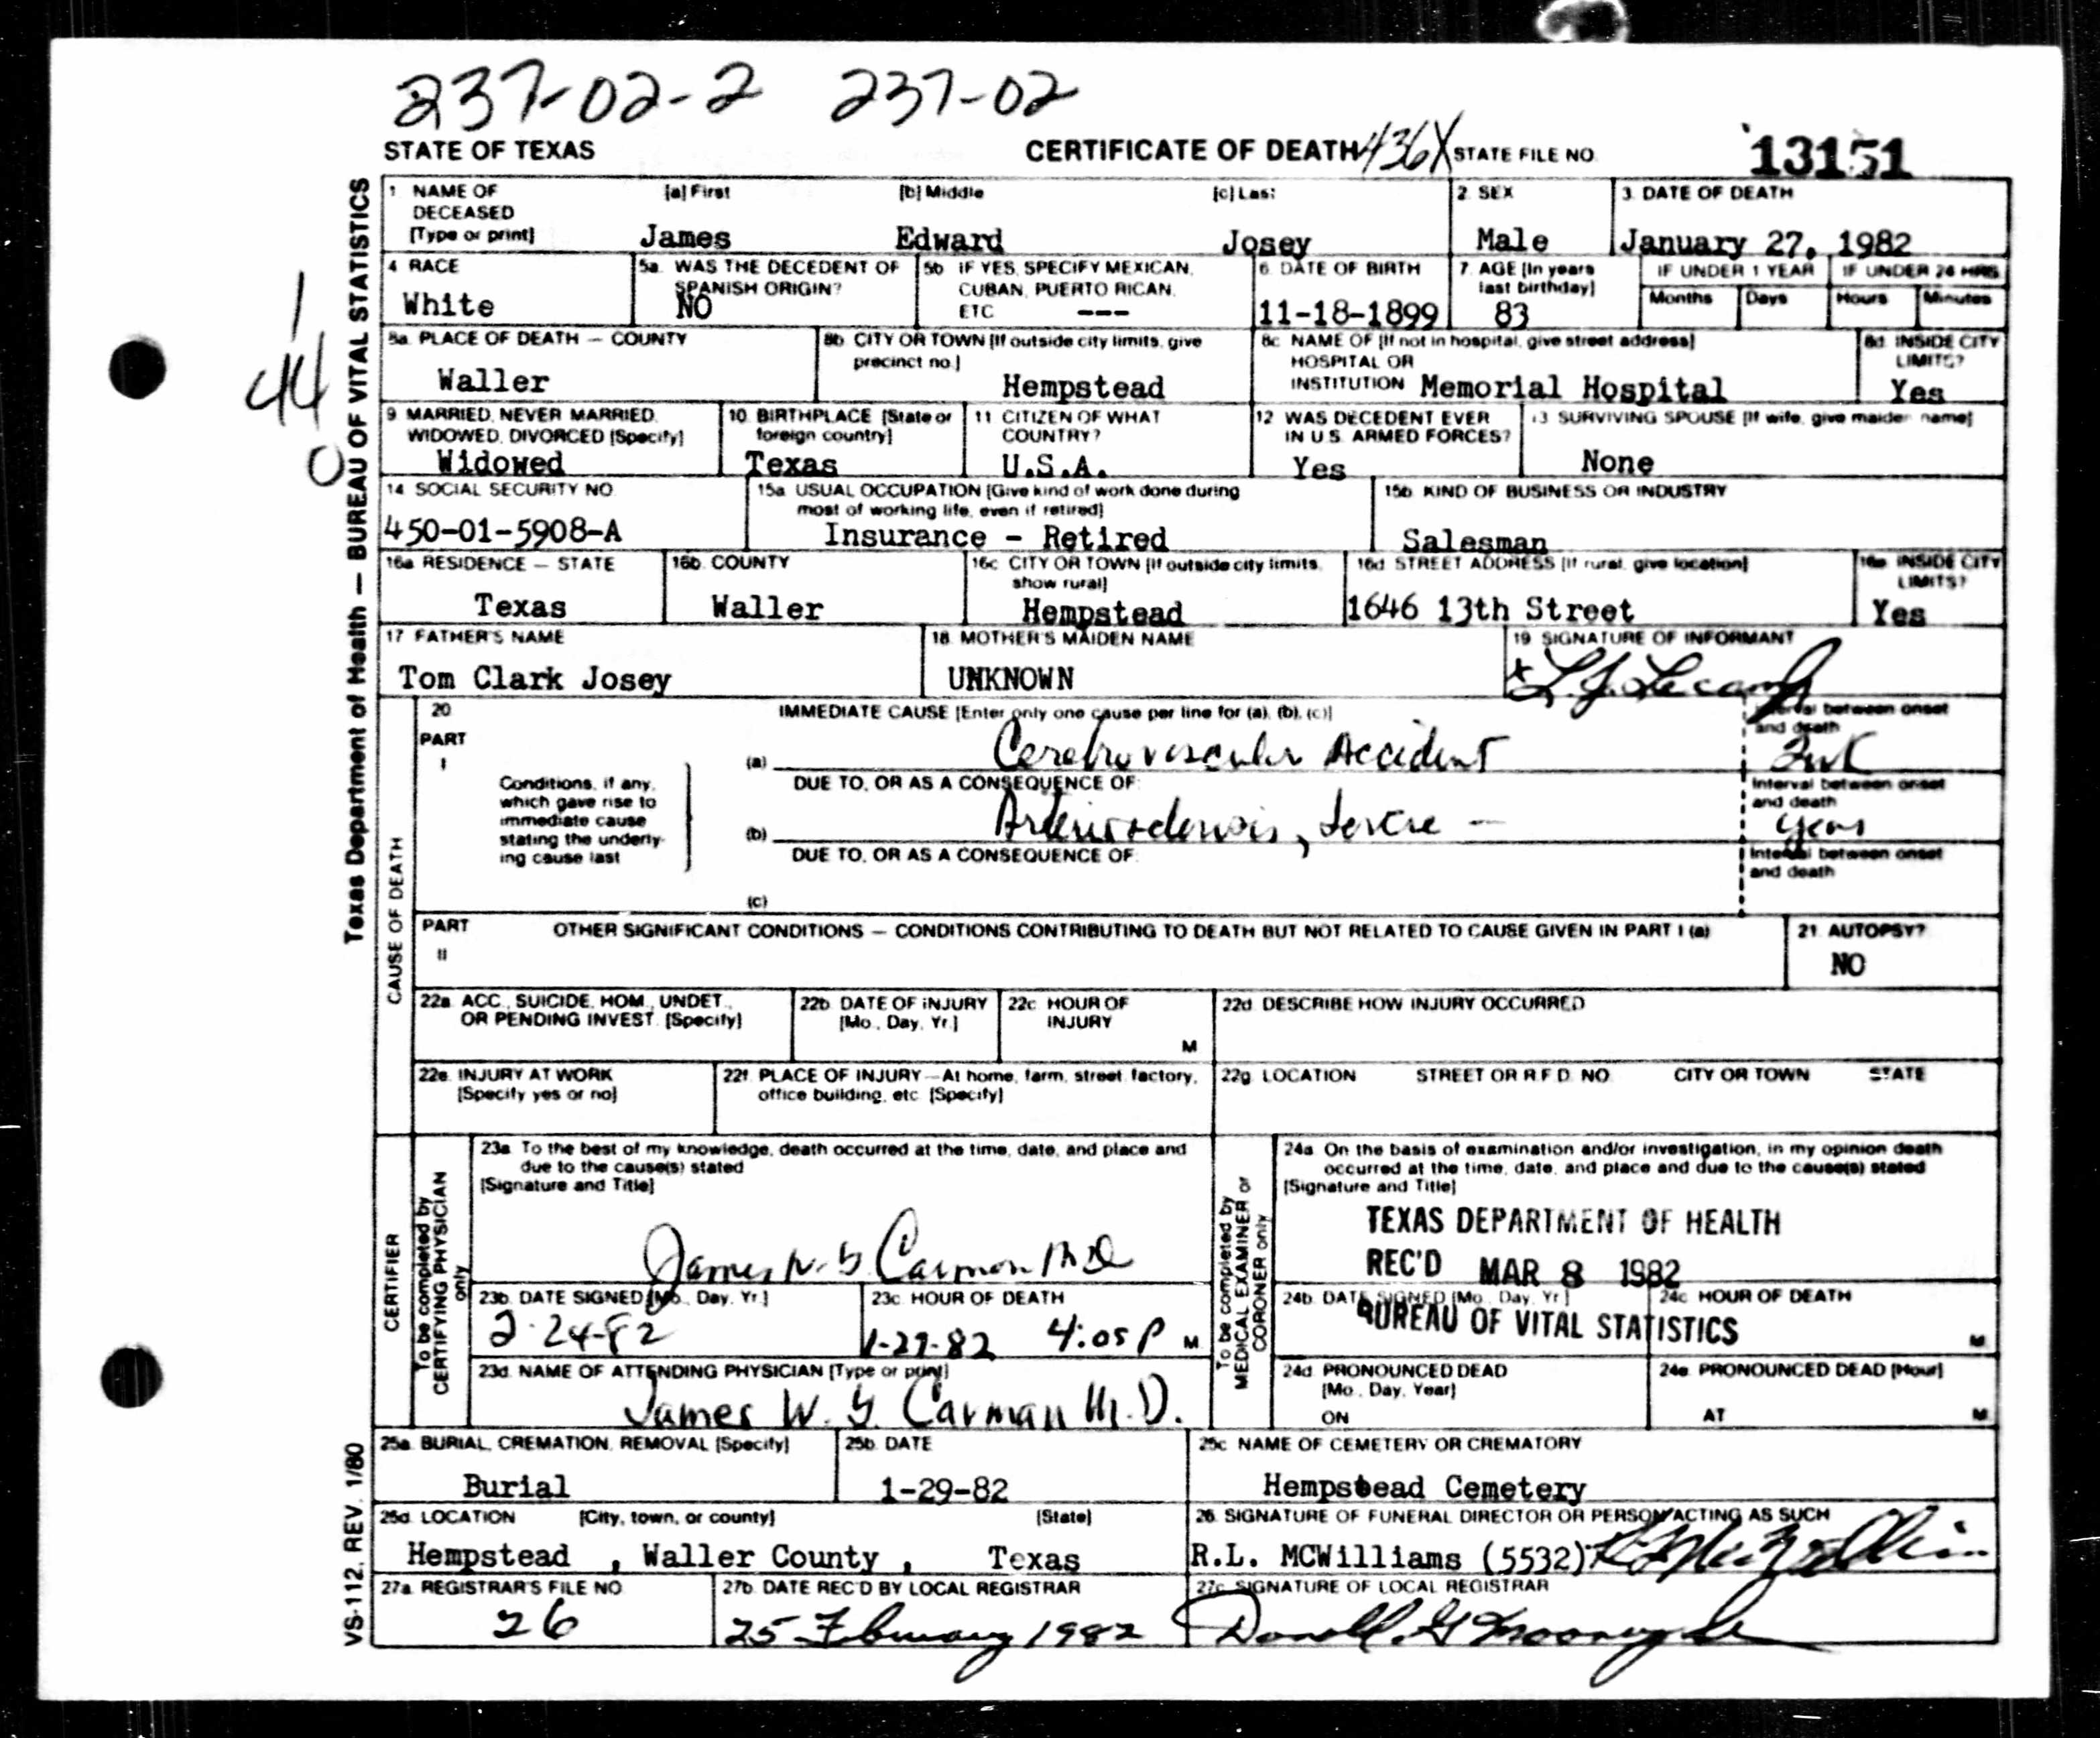 237-02-2 237-02
STATE OF TEXAS CERTIFICATE OF DEATH 436X STATE FILE NO. 13151
Texas Department of Health — BUREAU OF VITAL STATISTICS
1 NAME OF DECEASED [Type or print] [a] First [b] Middle [c] Last 2 SEX 3 DATE OF DEATH
James Edward Josey Male January 27, 1982
4 RACE 5a. WAS THE DECEDENT OF SPANISH ORIGIN? 5b IF YES, SPECIFY MEXICAN, CUBAN, PUERTO RICAN, ETC 6. DATE OF BIRTH 7. AGE [In years last birthday] IF UNDER 1 YEAR IF UNDER 24 HRS
Months Days Hours Minutes
White NO --- 11-18-1899 83
8a. PLACE OF DEATH — COUNTY 8b. CITY OR TOWN [If outside city limits, give precinct no.] 8c NAME OF [If not in hospital, give street address] HOSPITAL OR INSTITUTION 8d INSIDE CITY LIMITS?
Waller Hempstead Memorial Hospital Yes
44
0
9 MARRIED, NEVER MARRIED, WIDOWED, DIVORCED [Specify] 10. BIRTHPLACE [State or foreign country] 11 CITIZEN OF WHAT COUNTRY? 12 WAS DECEDENT EVER IN U.S. ARMED FORCES? 13 SURVIVING SPOUSE [If wife, give maiden name]
Widowed Texas U.S.A. Yes None
14 SOCIAL SECURITY NO 15a. USUAL OCCUPATION [Give kind of work done during most of working life, even if retired] 15b. KIND OF BUSINESS OR INDUSTRY
450-01-5908-A Insurance - Retired Salesman
16a RESIDENCE — STATE 16b. COUNTY 16c. CITY OR TOWN [If outside city limits, show rural] 16d STREET ADDRESS [If rural, give location] 16e INSIDE CITY LIMITS?
Texas Waller Hempstead 1646 13th Street Yes
17 FATHER'S NAME 18. MOTHER'S MAIDEN NAME 19 SIGNATURE OF INFORMANT
Tom Clark Josey UNKNOWN
CAUSE OF DEATH
20 IMMEDIATE CAUSE [Enter only one cause per line for (a), (b), (c)] Interval between onset and death
PART I
(a) Cerebrovascular Accident
Conditions, if any, which gave rise to immediate cause stating the underlying cause last
DUE TO, OR AS A CONSEQUENCE OF: Interval between onset and death
(b) Arteriosclerosis, severe — years
DUE TO, OR AS A CONSEQUENCE OF: Interval between onset and death
(c)
PART II OTHER SIGNIFICANT CONDITIONS — CONDITIONS CONTRIBUTING TO DEATH BUT NOT RELATED TO CAUSE GIVEN IN PART I (a) 21. AUTOPSY?
NO
22a. ACC., SUICIDE, HOM., UNDET., OR PENDING INVEST. [Specify] 22b. DATE OF INJURY [Mo., Day, Yr.] 22c. HOUR OF INJURY M 22d. DESCRIBE HOW INJURY OCCURRED
22e. INJURY AT WORK [Specify yes or no] 22f. PLACE OF INJURY—At home, farm, street, factory, office building, etc. [Specify] 22g. LOCATION STREET OR R.F.D. NO. CITY OR TOWN STATE
CERTIFIER
To be completed by CERTIFYING PHYSICIAN only
23a. To the best of my knowledge, death occurred at the time, date, and place and due to the cause(s) stated
[Signature and Title]
James W. G. Carman MD
23b. DATE SIGNED [Mo., Day, Yr.] 23c. HOUR OF DEATH
2-24-82 1-27-82 4:05 P M
23d. NAME OF ATTENDING PHYSICIAN [Type or print]
James W. G. Carman M.D.
To be completed by MEDICAL EXAMINER or CORONER only
24a. On the basis of examination and/or investigation, in my opinion death occurred at the time, date, and place and due to the cause(s) stated
[Signature and Title]
TEXAS DEPARTMENT OF HEALTH
REC'D MAR 8 1982
BUREAU OF VITAL STATISTICS
24b. DATE SIGNED [Mo., Day, Yr.] 24c HOUR OF DEATH M
24d. PRONOUNCED DEAD [Mo., Day, Year] ON 24e PRONOUNCED DEAD [Hour] AT M
25a. BURIAL, CREMATION, REMOVAL [Specify] 25b. DATE 25c NAME OF CEMETERY OR CREMATORY
Burial 1-29-82 Hempstead Cemetery
25d. LOCATION [City, town, or county] [State] 26. SIGNATURE OF FUNERAL DIRECTOR OR PERSON ACTING AS SUCH
Hempstead , Waller County , Texas R.L. MCWilliams (5532)
27a. REGISTRAR'S FILE NO 27b. DATE REC'D BY LOCAL REGISTRAR 27c. SIGNATURE OF LOCAL REGISTRAR
26 25 February 1982
VS-112, REV. 1/80